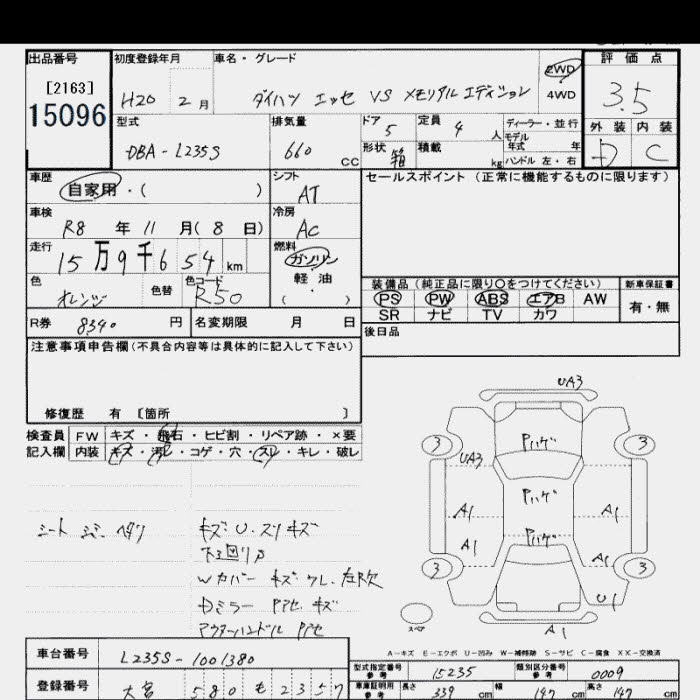 出品番号 初度登録年月 車名・グレード 2WD 評価点
[2163] H20 2月 ダイハツ エッセ VS メモリアルエディション 4WD 3.5
15096 型式 排気量 ドア 5 定員 4 人 ディーラー・並行 外装 内装
DBA-L235S 660 cc 形状 箱 積載 kg モデル年式 年 ハンドル 左・右 D C
車歴 自家用・( ) シフト AT セールスポイント (正常に機能するものに限ります)
車検 R8 年 11 月 (8 日) 冷房 AC
走行 15万9千654 km 燃料 ガソリン
軽油
( ・ )
色 オレンジ 色替 色コード R50
装備品 (純正品に限り○をつけてください) 新車保証書
PS PW ABS エアB AW 有・無
SR ナビ TV カワ
R券 8340 円 名変期限 月 日
後日品
注意事項申告欄 (不具合内容等は具体的に記入して下さい)
修復歴 有 [箇所 ]
検査員 FW キズ・飛石・ヒビ割・リペア跡・×要
記入欄 内装 キズ・汚レ・コゲ・穴・スレ・キレ・破レ
UA3
3 Pハゲ 3
UA3
Pハゲ
A1 A1
Pハゲ
A1 A1
3 3
U1
スペア
A1
キズ・U・スリキズ
下回りサ
Wカバー キズ・ワレ・左R欠
Dミラー Pアセ・キズ
アウターハンドル Pアセ
A-キズ E-エクボ U-凹み W-補修跡 S-サビ C-腐食 XX-交換済
車台番号 L235S-1001380
型式指定番号 参考 15235 類別区分番号 参考 0009
登録番号 大宮 580 も 2357
車庫証明用 参考 長さ 339 cm 幅 147 cm 高さ 147 cm